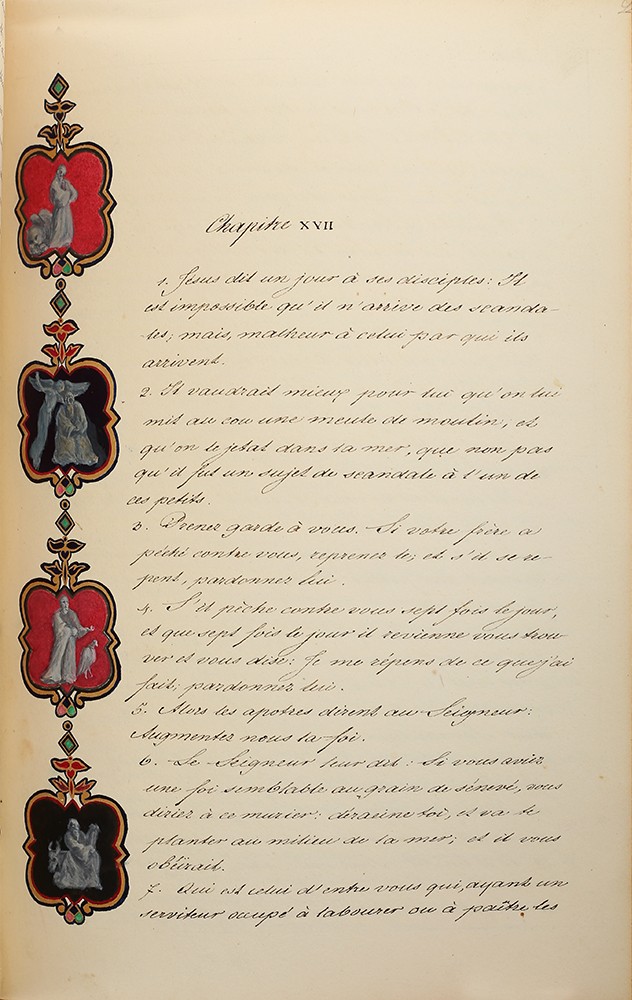 Chapitre XVII
1. Jésus dit un jour à ses disciples: Il
est impossible qu'il n'arrive des scanda-
les; mais, malheur à celui par qui ils
arrivent.
2. Il vaudrait mieux pour lui qu'on lui
mit au cou une meule de moulin, et
qu'on le jetat dans la mer, que non pas
qu'il fut un sujet de scandale à l'un de
ces petits.
3. Prenez garde à vous. Si votre frère a
péché contre vous, reprenez le; et s'il se re-
pent, pardonnez lui.
4. S'il pèche contre vous sept fois le jour,
et que sept fois le jour il revienne vous trou-
ver et vous dise: Je me répens de ce que j'ai
fait; pardonnez lui.
5. Alors les apotres dirent au Seigneur:
Augmentez nous la foi.
6. Le Seigneur leur dit: Si vous aviez
une foi semblable au grain de sénevé, vous
diriez à ce murier: déracine toi, et va te
planter au milieu de la mer; et il vous
obéirait.
7. Qui est celui d'entre vous qui, ayant un
serviteur occupé à labourer ou à paître les